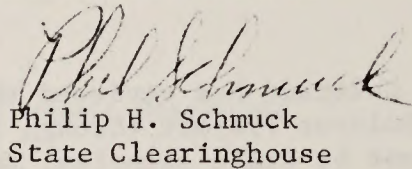 Phil Schmuck
Philip H. Schmuck
State Clearinghouse